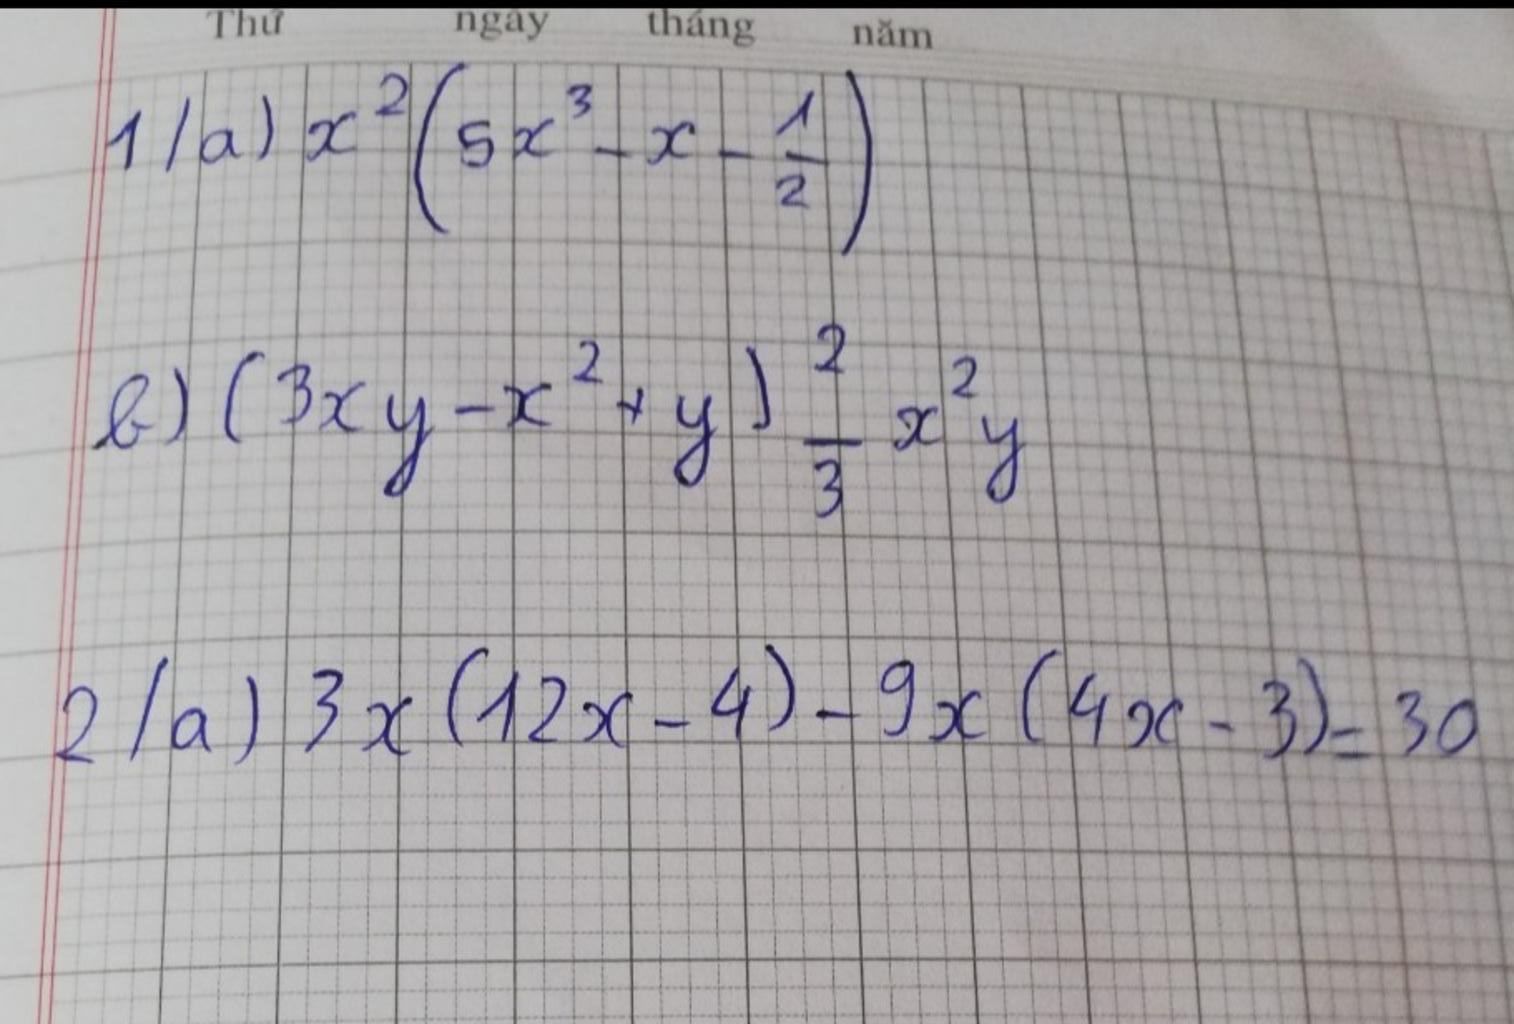 Thứ ngày tháng năm
1/a) x²(5x³ - x - 1/2)
b) (3xy - x² + y) 2/3 x²y
2/a) 3x(12x - 4) - 9x(4x - 3) = 30